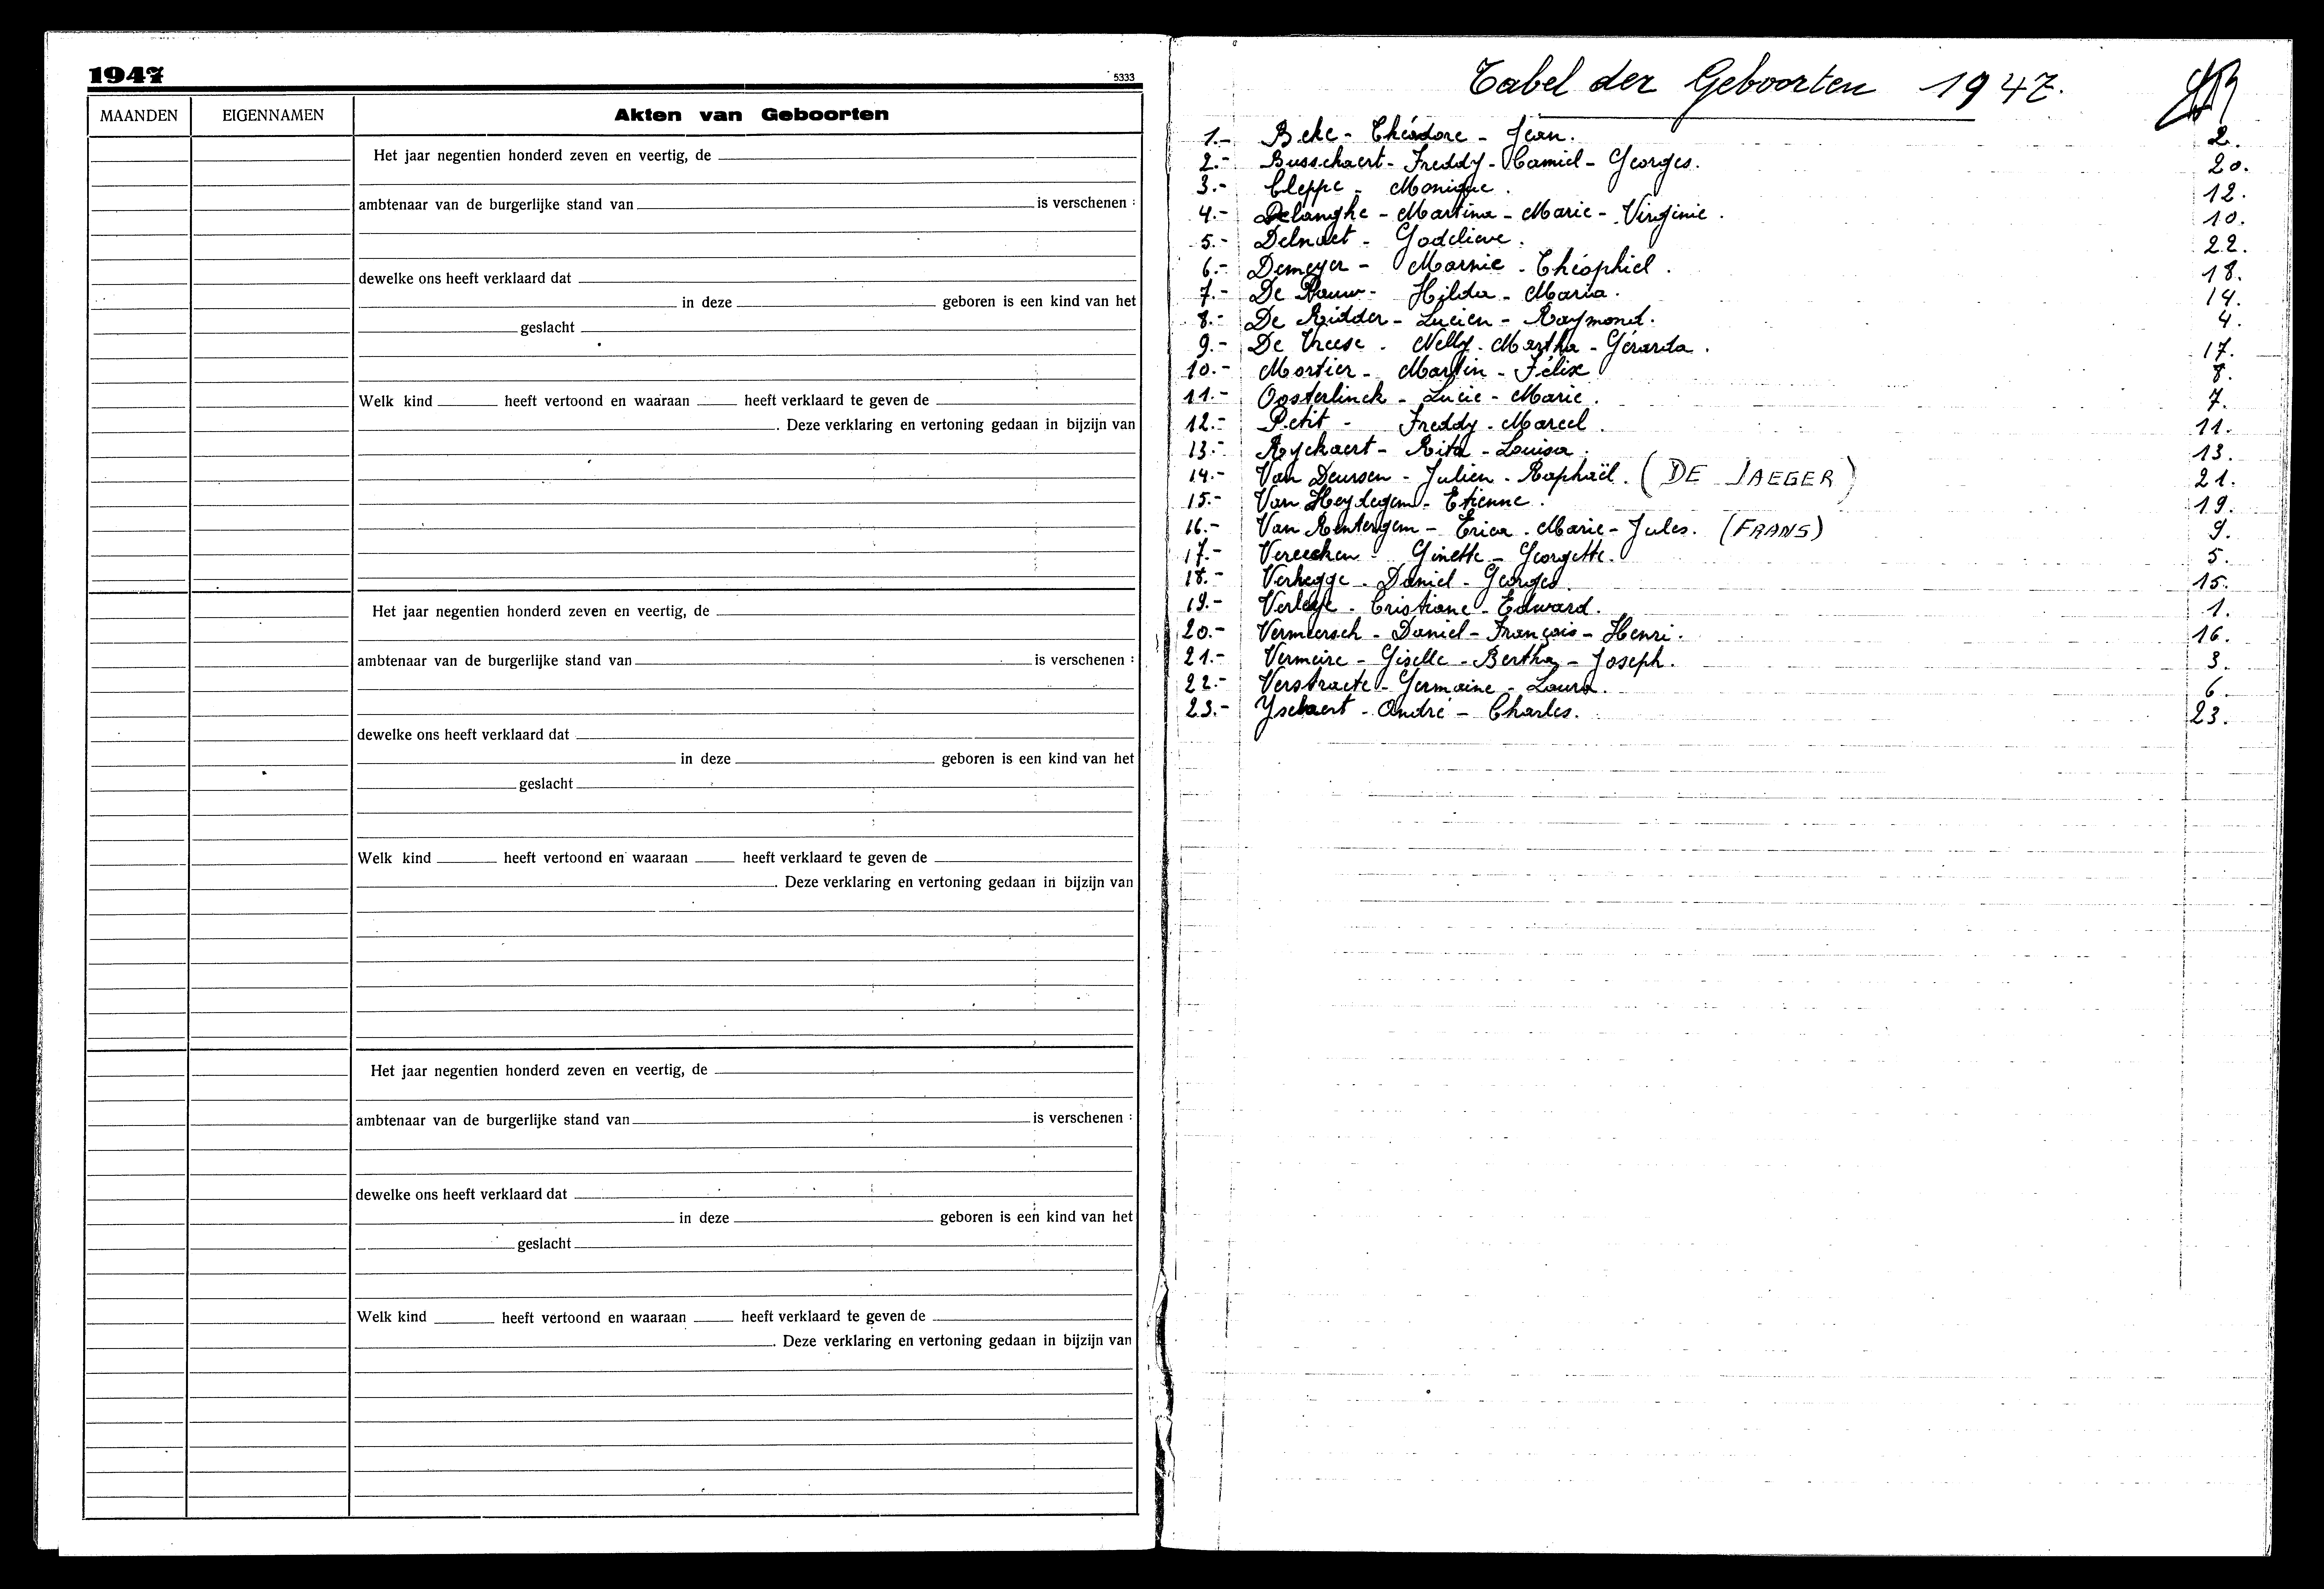 1947
5333
MAANDEN EIGENNAMEN Akten van Geboorten
Het jaar negentien honderd zeven en veertig, de
ambtenaar van de burgerlijke stand van is verschenen :
dewelke ons heeft verklaard dat
in deze geboren is een kind van het
geslacht
Welk kind heeft vertoond en waaraan heeft verklaard te geven de
. Deze verklaring en vertoning gedaan in bijzijn van
Het jaar negentien honderd zeven en veertig, de
ambtenaar van de burgerlijke stand van is verschenen :
dewelke ons heeft verklaard dat
in deze geboren is een kind van het
geslacht
Welk kind heeft vertoond en waaraan heeft verklaard te geven de
. Deze verklaring en vertoning gedaan in bijzijn van
Het jaar negentien honderd zeven en veertig, de
ambtenaar van de burgerlijke stand van is verschenen :
dewelke ons heeft verklaard dat
in deze geboren is een kind van het
geslacht
Welk kind heeft vertoond en waaraan heeft verklaard te geven de
. Deze verklaring en vertoning gedaan in bijzijn van
Tabel der Geboorten 1947.
1.- Beke - Théodore - Jean. 2.
2.- Busschaert - Freddy - Camiel - Georges. 20.
3.- Cleppe - Monique. 12.
4.- Delanghe - Martina - Marie - Virginie. 10.
5.- Delnaet - Godelieve. 22.
6.- Demeyer - Marnic - Théophiel. 18.
7.- De Pauw - Hilda - Maria. 14.
8.- De Ridder - Lucien - Raymond. 4.
9.- De Vreese - Nelly - Martha - Gérarda. 17.
10.- Mortier - Martin - Félix 8.
11.- Oosterlinck - Lucie - Marie. 7.
12.- Petit - Freddy - Marcel. 11.
13.- Ryckaert - Rita - Louisa. 13.
14.- Van Deursen - Julien - Raphaël. (DE JAEGER) 21.
15.- Van Heydegem - Etienne. 19.
16.- Van Renterghem - Erica - Marie - Jules. (FRANS) 9.
17.- Vereecken - Ginette - Georgette. 5.
18.- Verhegge - Daniel - Georges. 15.
19.- Verleye - Cristiane - Edward. 1.
20.- Vermeersch - Daniel - François - Henri. 16.
21.- Vermeire - Giselle - Bertha - Joseph. 3.
22.- Verstraete - Germaine - Laura. 6.
23.- Ysebaert - André - Charles. 23.